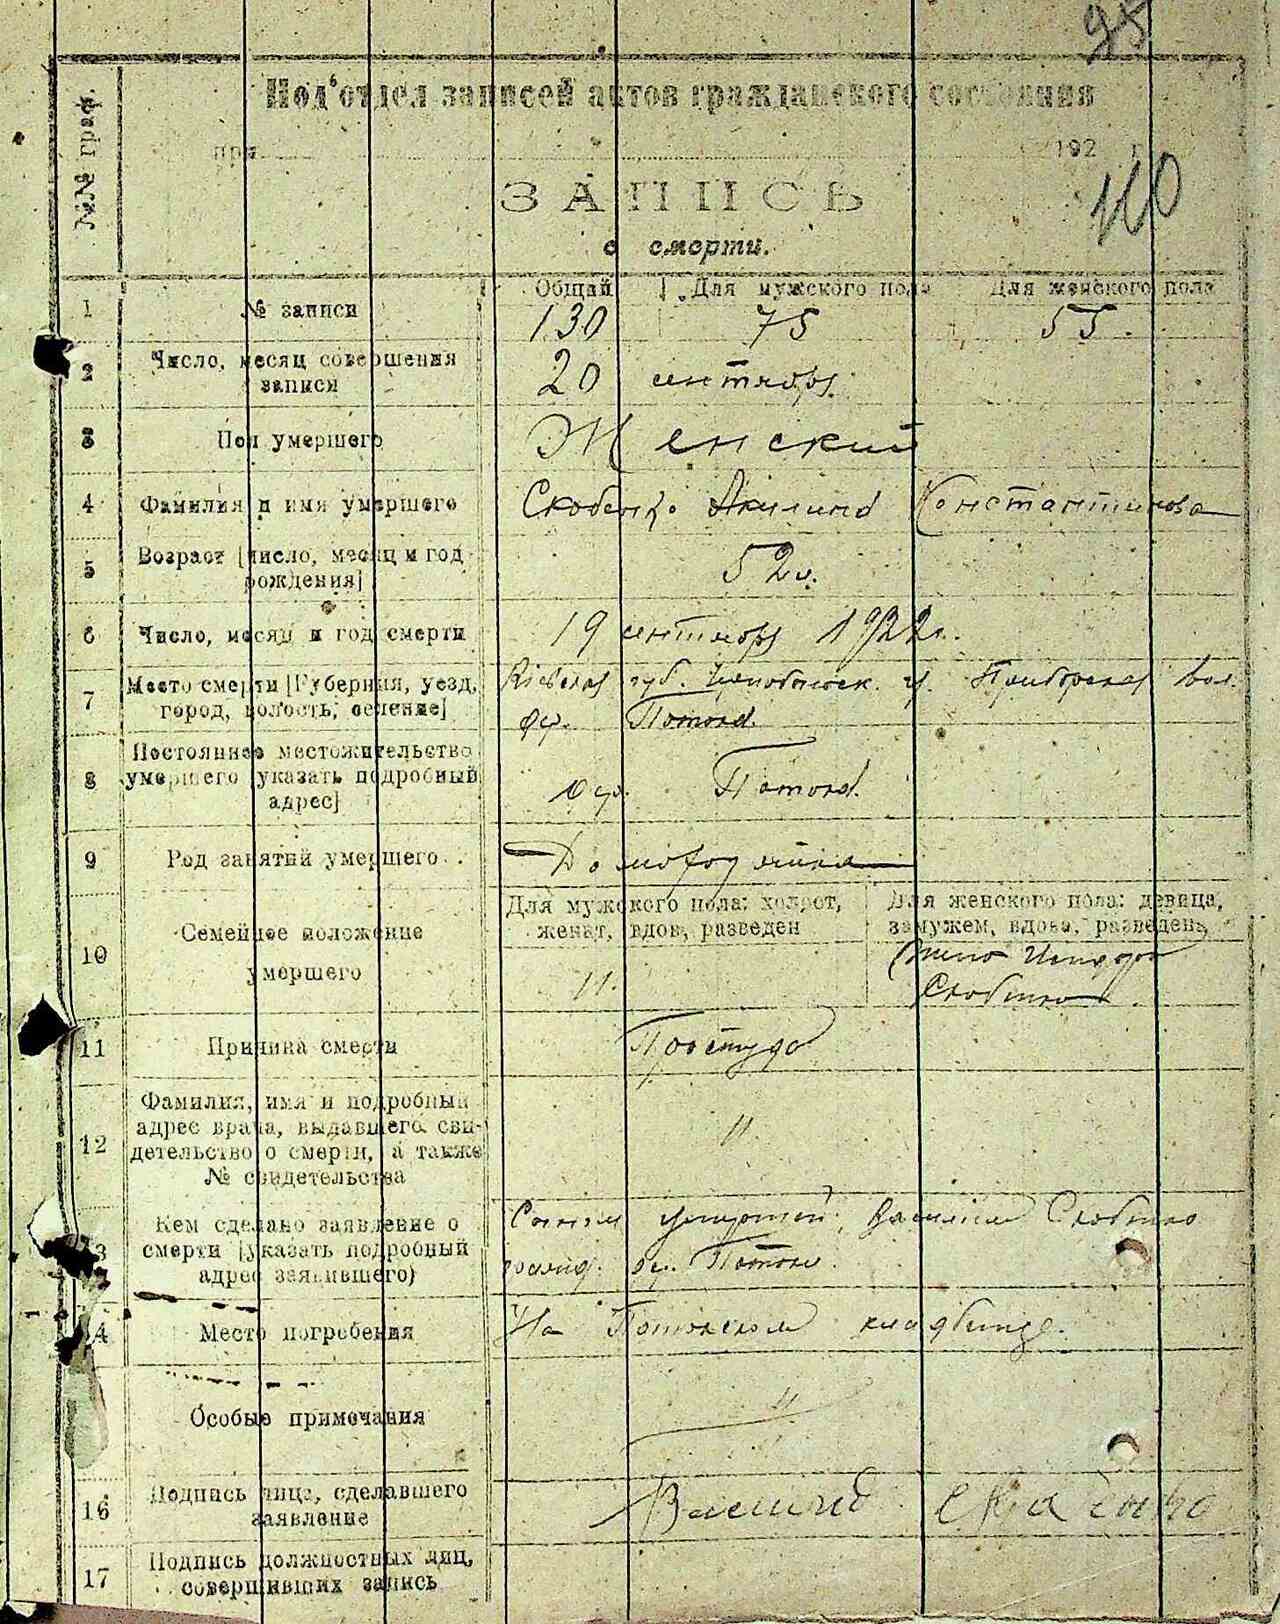 95
№№ граф.
Под'отдел записей актов гражданского состояния
при 192 г.
110
ЗАПИСЬ
о смерти.
Общий Для мужского пола Для женского пола
1 № записи 130 75 55.
2 Число, месяц совершения
записи 20 сентября
3 Пол умершего Женский
4 Фамилия и имя умершего Скобенко Акилина Константинова
5 Возраст [число, месяц и год
рождения] 52 г.
6 Число, месяц и год смерти 19 сентября 1922 г.
7 Место смерти [Губерния, уезд, Киевская губ. у. Приборская вол.
город, волость, селение] дер. Потоки
8 Постоянное местожительство
умершего [указать подробный дер. Потоки
адрес]
9 Род занятий умершего
Для мужского пола: холост, Для женского пола: девица,
женат, вдов, разведен замужем, вдова, разведена
10 Семейное положение
умершего 11. жена
Скобенко
11 Причина смерти Простуда
12 Фамилия, имя и подробный
адрес врача, выдавшего сви-
детельство о смерти, а также 11
№ свидетельства
13 Кем сделано заявление о Сыном умершей Василием Скобенко
смерти [указать подробный
адрес заявившего) дер. Потоки
14 Место погребения На Потокском кладбище.
Особые примечания 11.
16 Подпись лица, сделавшего Василий
заявление
17 Подпись должностных лиц,
совершивших запись